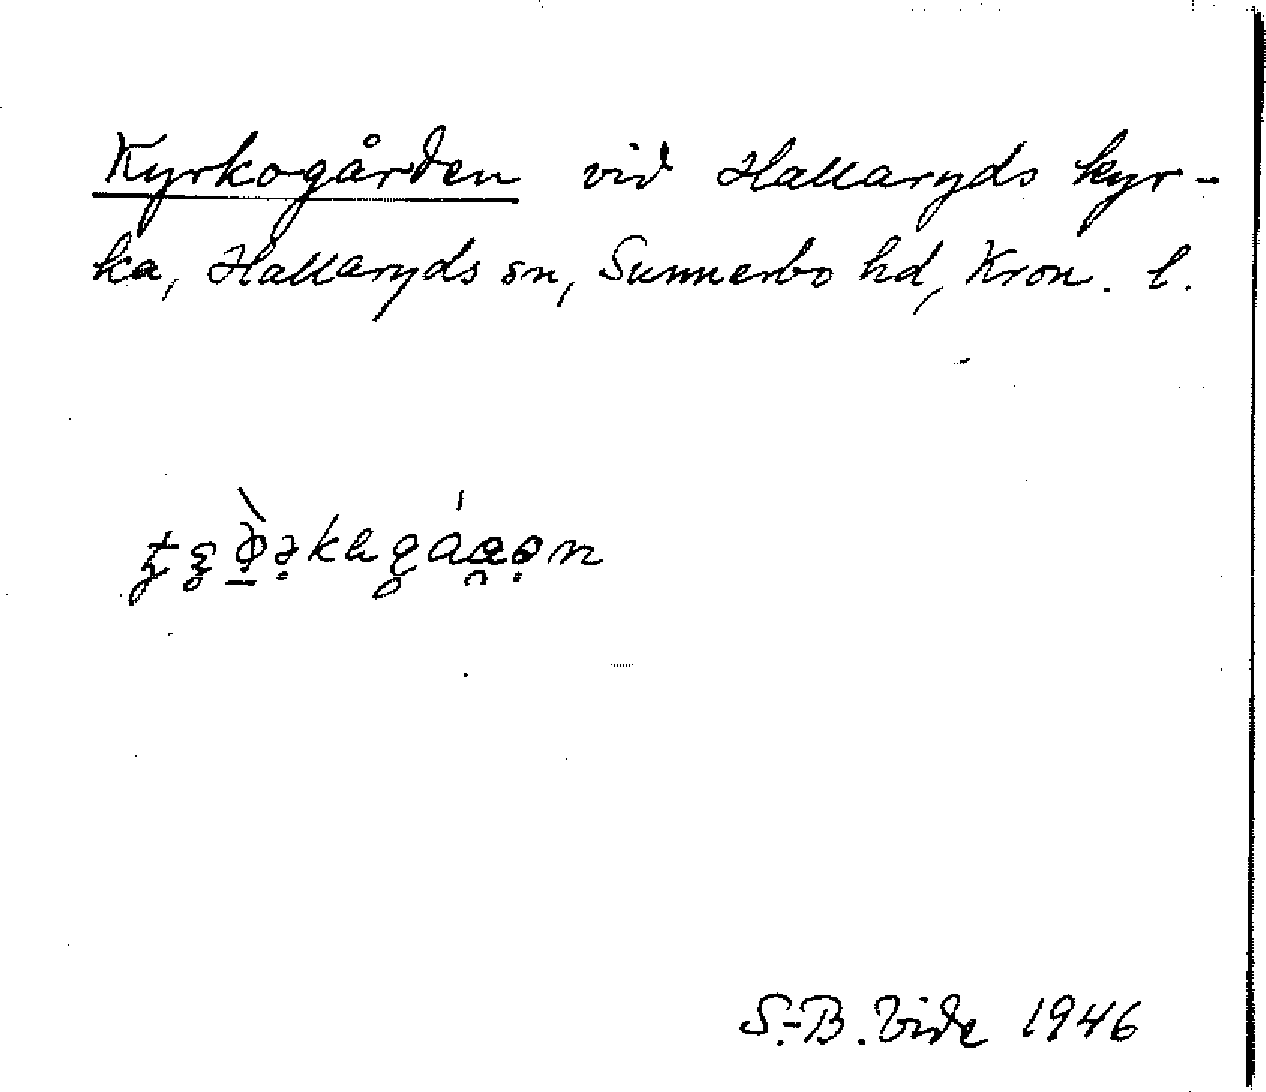 Kyrkogården vid Hallaryds kyr-
ka, Hallaryds sn, Sunnerbo hd, Kron. l.
S.-B. Vide 1946